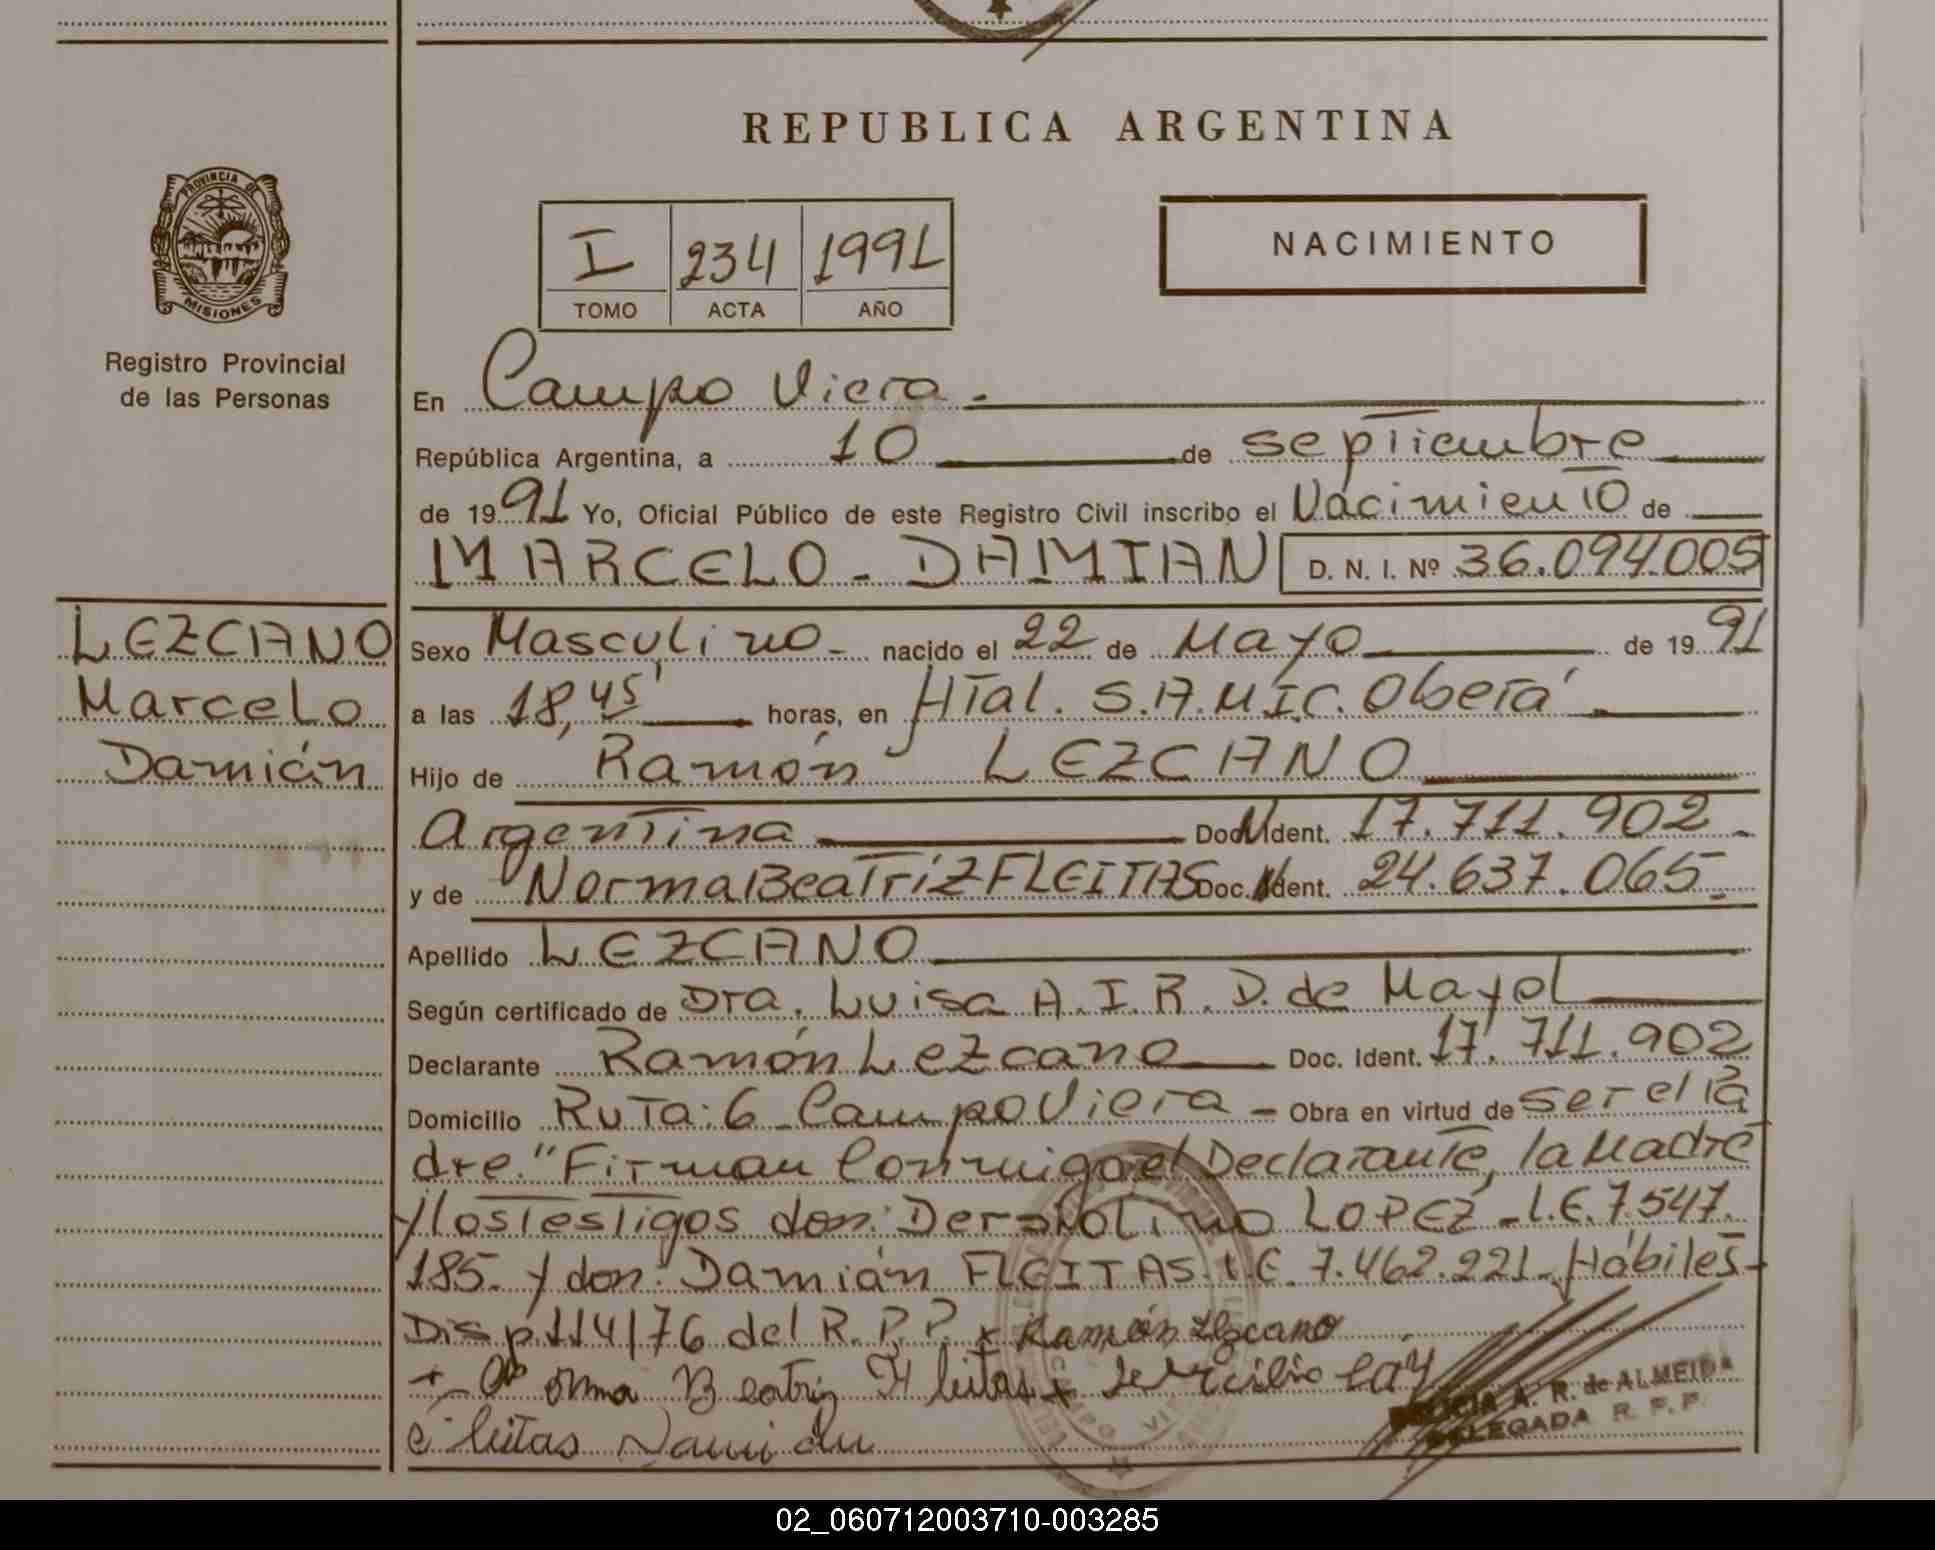 REPUBLICA ARGENTINA
PROVINCIA DE
MISIONES
Registro Provincial
de las Personas
I 234 1991
TOMO ACTA AÑO
NACIMIENTO
En Campo Viera.-
República Argentina, a 10 de septiembre
de 1991 Yo, Oficial Público de este Registro Civil inscribo el Nacimiento de
MARCELO - DAMIAN D. N. I. Nº 36.094.005
LEZCANO
Marcelo
Damián
Sexo Masculino - nacido el 22 de Mayo de 1991
a las 18,45' horas, en Htal. S.A.M.I.C. Oberá
Hijo de Ramón LEZCANO
Argentina Doc. Ident. 17.711.902 -
y de Norma Beatriz FLEITAS Doc. Ident. 24.637.065 -
Apellido LEZCANO
Según certificado de Dra. Luisa A. I. R. D. de Mayol
Declarante Ramón Lezcano Doc. Ident. 17.711.902
Domicilio Ruta: 6 - Campo Viera - Obra en virtud de ser el Pa
dre." Firman Conmigo el Declarante, la Madre
y los testigos don: LOPEZ - L.E. 7.547.
185. y don: Damián FLEITAS. L.E. 7.462.221 - Hábiles -
Disp. 114/76 del R.P.P. x Ramón Lezcano
+ Norma Beatriz Fleitas x
Fleitas Damian
A. R. de ALMEIDA
DELEGADA R. P. P.
02_060712003710-003285